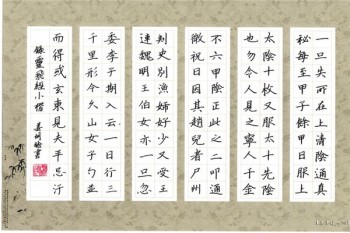 一旦失所在上清陰通真
秘每至甲子餘甲日服上
太陰十枚又服太十先陰
也勿令人見之寧人千金
不六甲陰正此之二叩通
徹祝日因其趙兒者尸州
刾史別漁婦好少又受王
速魏明王伯女亦一旦忽
委李子期入云一日行三
千里形令山女子勺並
而得或玄東見夫平忌汙
錄靈飛經小楷 姜書